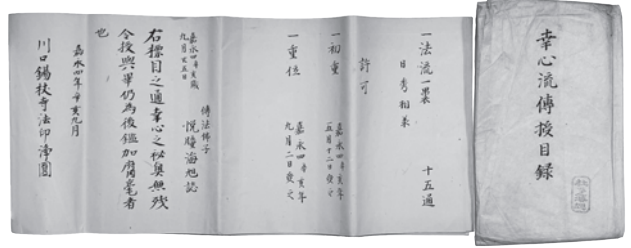 幸心流傳授目録
一法流一裹 十五通
日秀相承
許可
一初重 嘉永四辛亥年
五月十二日受之
一重位 嘉永四辛亥年
九月二日受之
傳法佛子
嘉永四辛亥歳
九月廿五日 悦贍海旭誌
右標目之通幸心之秘奥無残
令授與畢仍為後鑑加腐毫者
也
嘉永四年辛亥九月
川口錫杖寺法印